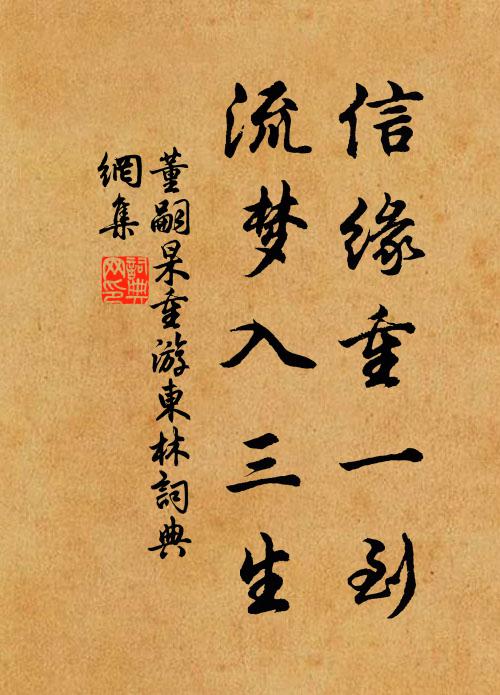 信缘重一到
流梦入三生
董嗣杲重游東林詞典
網集
詞典
网印